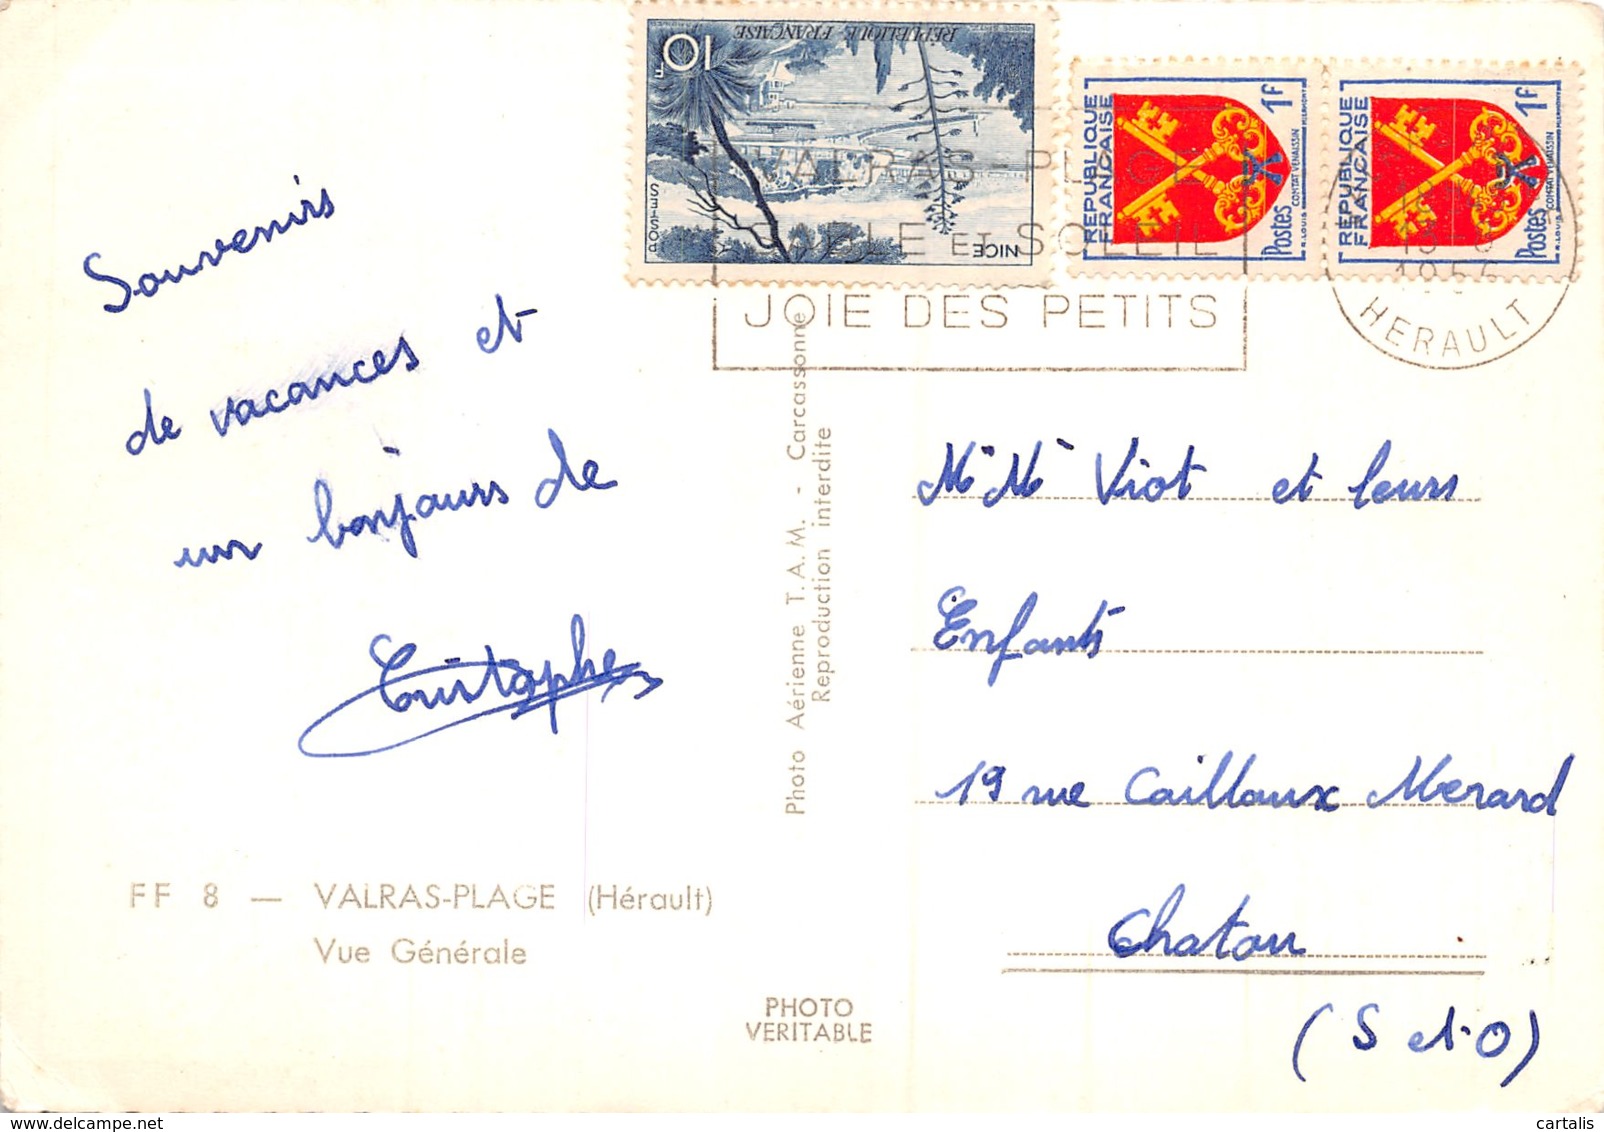 Souvenirs
de vacances et
un bonjours de
Cristophe
FF 8 — VALRAS-PLAGE (Hérault)
Vue Générale
PHOTO
VERITABLE
Photo Aérienne T.A.M. - Carcassonne
Reproduction interdite
10F
RÉPUBLIQUE FRANÇAISE
POSTES
NICE
RÉPUBLIQUE
FRANÇAISE
1F
Postes
COMTAT VENAISSIN
R. LOUIS
RÉPUBLIQUE
FRANÇAISE
1F
Postes
COMTAT VENAISSIN
R. LOUIS
VALRAS-PLAGE
SABLE ET SOLEIL
JOIE DES PETITS
HERAULT
Mr Me Viot et leurs
Enfants
19 rue Caillaux Merard
Chatou
(S et O)
cartalis